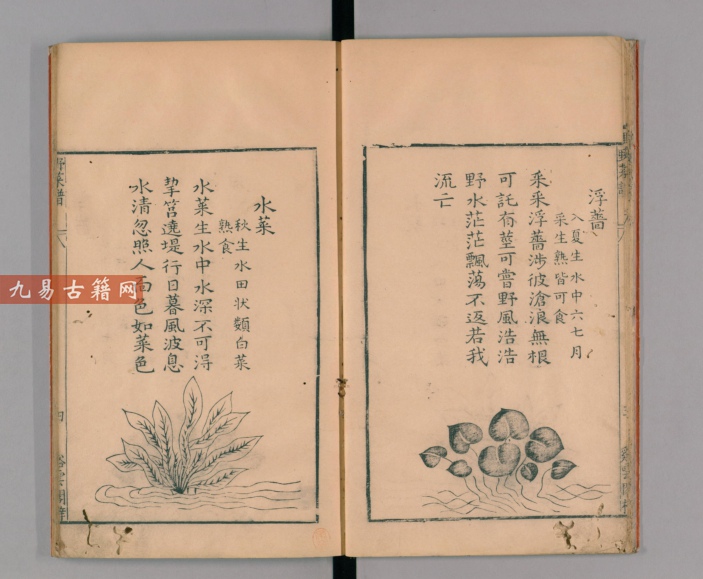 浮薔
入夏生水中六七月
采生熟皆可食
采采浮薔涉彼滄浪無根
可託有莖可嘗野風浩浩
野水茫茫飄蕩不返若我
流亡
水菜
秋生水田状類白菜
熟食
水菜生水中水深不可得
挈筥遶堤行日暮風波息
水清忽照人面色如菜色
野菜譜
九易古籍网